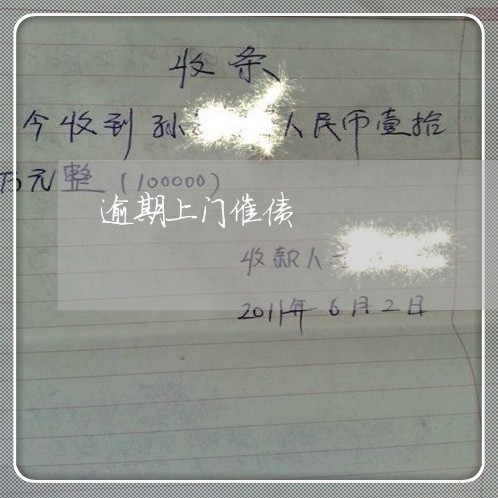 收条
今收到孙 人民币壹拾
万元整(100000)
逾期上门催债
收款人
2011年6月2日